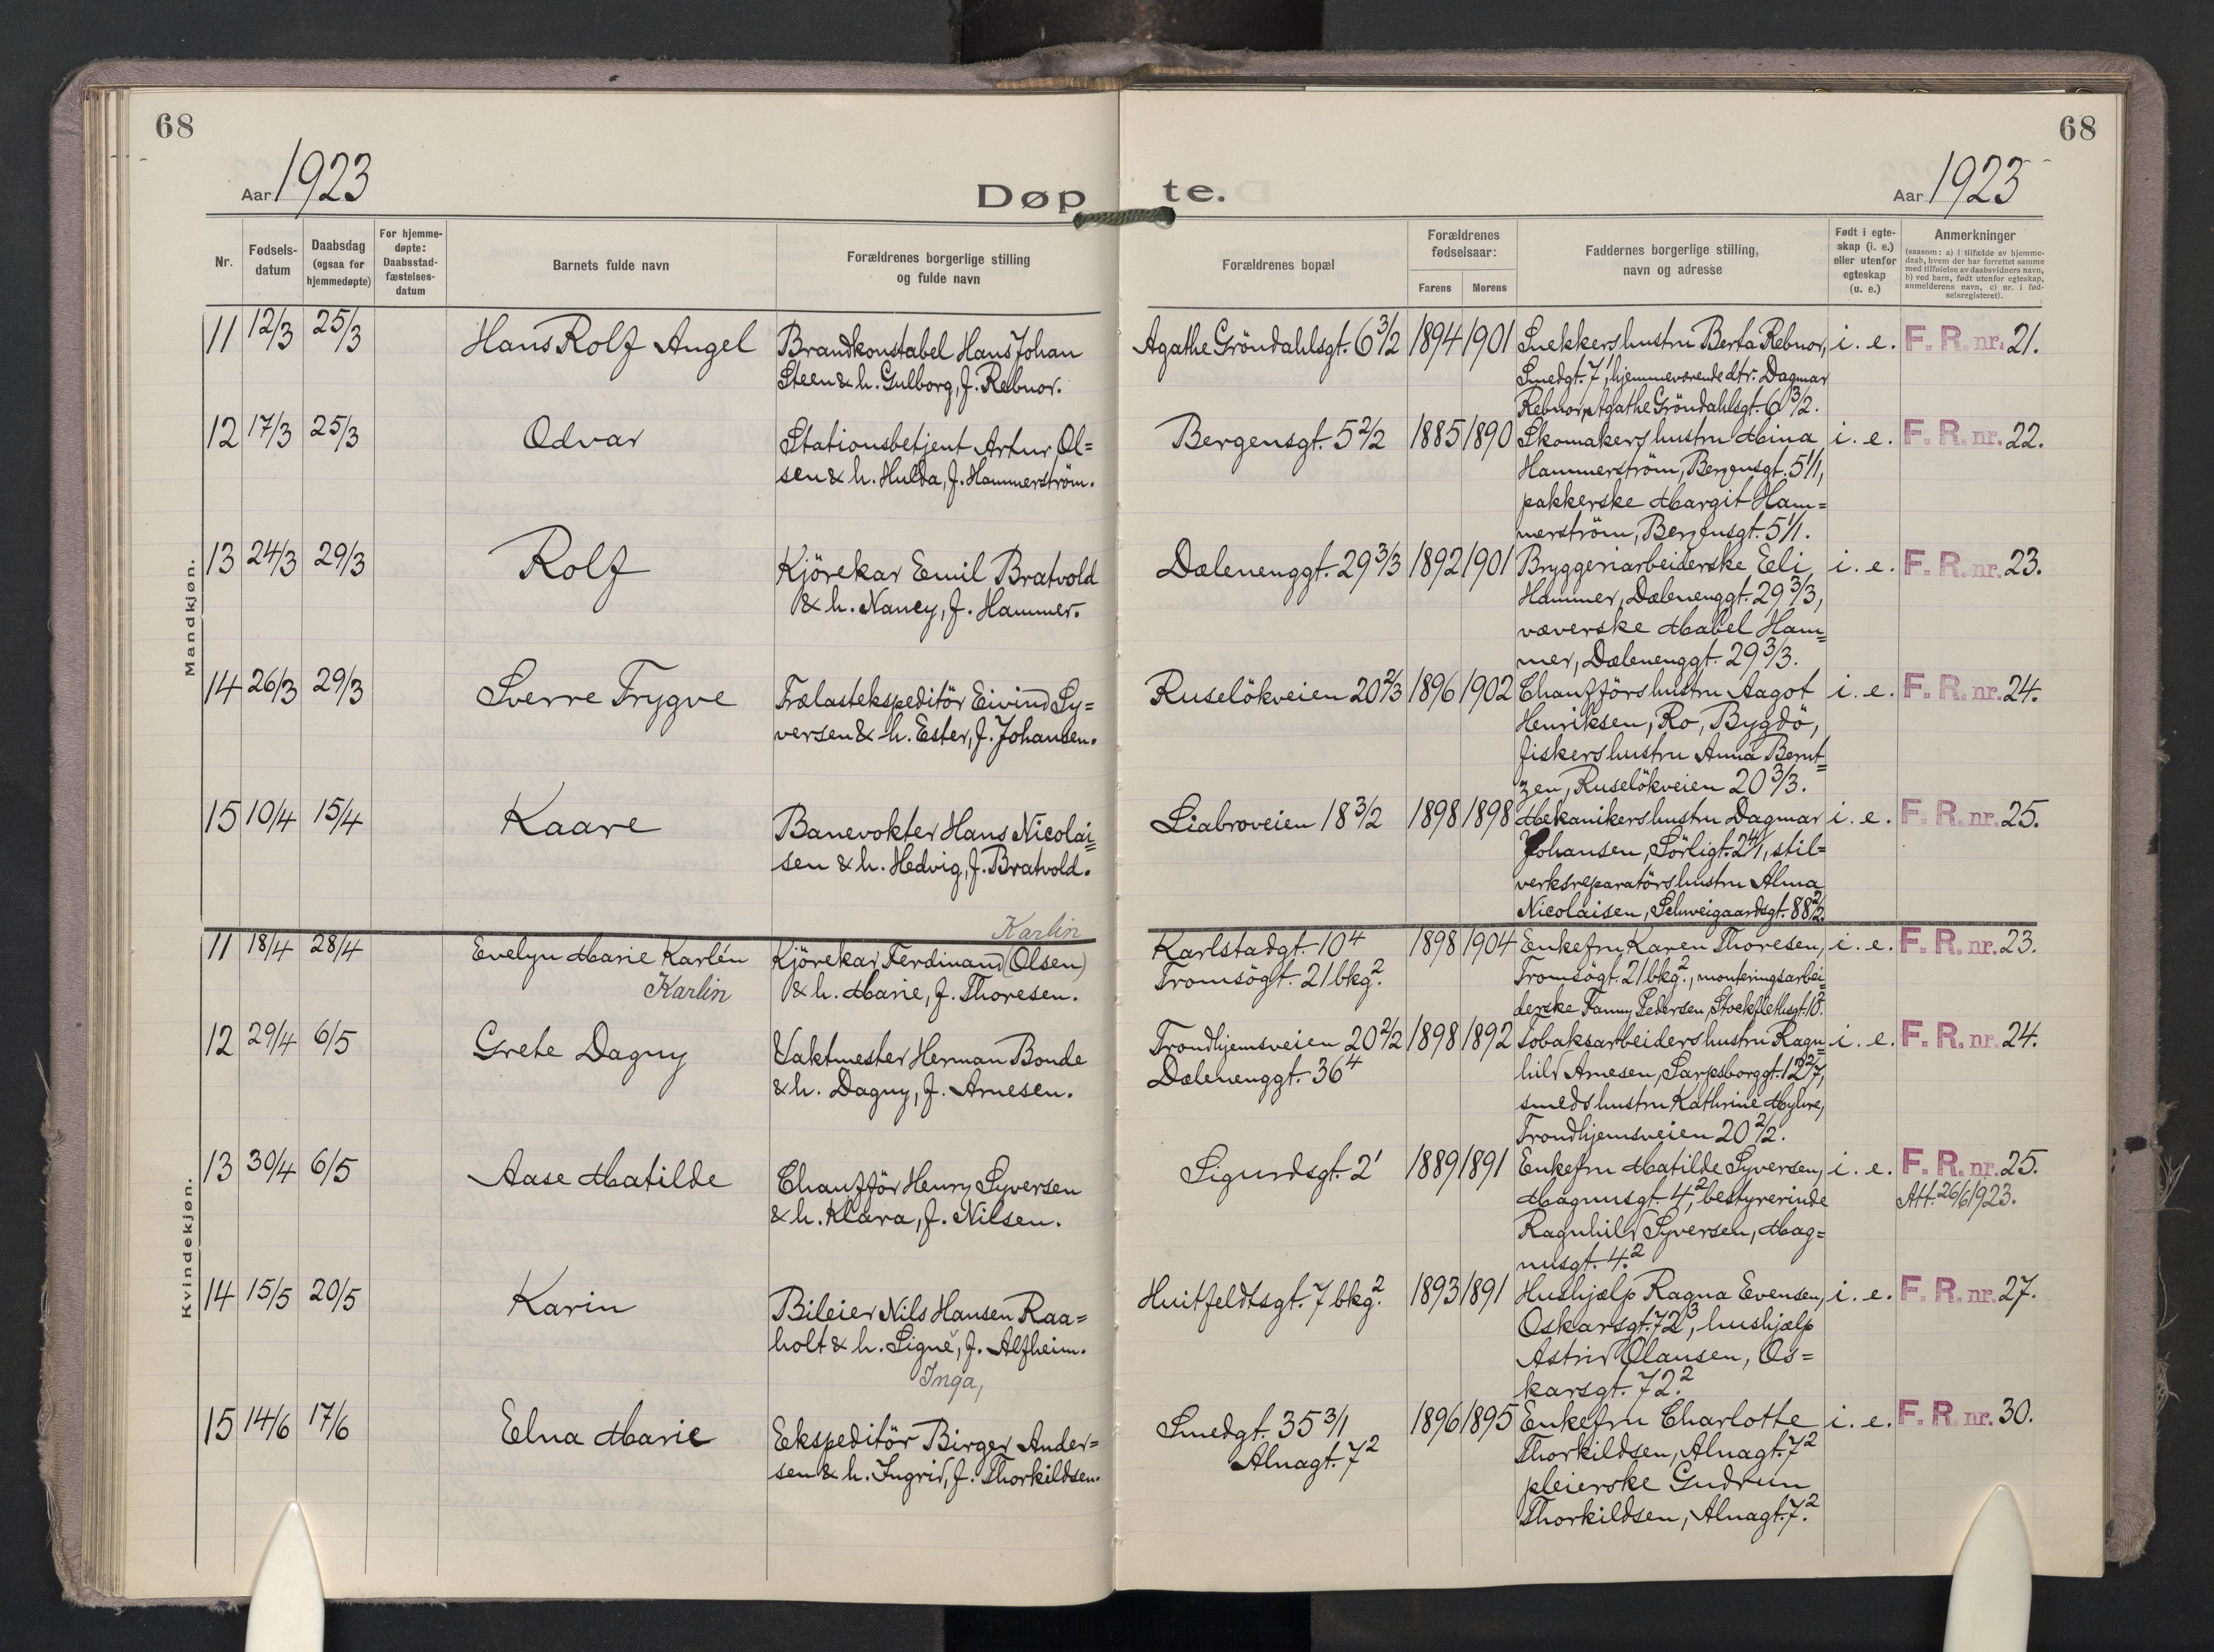 68
68
Aar 1923
Døpte.
Aar 1923
Nr.
Fødsels-
datum
Daabsdag
(ogsaa for
hjemmedøpte)
For hjemme-
døpte:
Daabsstad-
fæstelses-
datum
Barnets fulde navn
Forældrenes borgerlige stilling
og fulde navn
Forældrenes bopæl
Forældrenes
fødselsaar:
Farens
Morens
Faddernes borgerlige stilling,
navn og adresse
Født i egte-
skap (i. e.)
eller utenfor
egteskap
(u. e.)
Anmerkninger
(saasom: a) i tilfælde av hjemme-
daab, hvem der har forrettet samme
med tilføielse av daabsvidners navn,
b) ved barn, født utenfor egteskap,
anmelderens navn, c) nr. i fød-
selsregisteret).
Mandkjøn.
11 12/3 25/3 Hans Rolf Angel
Brandkonstabel Hans Johan
Steen & h. Gulborg, f. Rebnor.
Agathe Gröndahlsgt. 6 3/2 1894 1901
Snekkershustru Berta Rebnor,
Smedgt. 7', hjemmeværende dtr. Dagmar
Rebnor, Agathe Gröndahlsgt. 6 3/2.
i. e. F. R. nr. 21.
12 17/3 25/3 Odvar
Stationsbetjent Artur Ol=
sen & h. Hulda, f. Hammerström.
Bergensgt. 5 2/2 1885 1890
Skomakershustru Mina
Hammerström, Bergensgt. 5 1/1,
pakkerske Margit Ham=
merström, Bergensgt. 5 1/1.
i. e. F. R. nr. 22.
13 24/3 29/3 Rolf
Kjörekar Emil Bratvold
& h. Nancy, f. Hammer.
Dælenenggt. 29 3/3 1892 1901
Bryggeriarbeiderske Eli
Hammer, Dælenenggt. 29 3/3,
væverske Mabel Ham=
mer, Dælenenggt. 29 3/3.
i. e. F. R. nr. 23.
14 26/3 29/3 Sverre Trygve
Trælastekspeditör Eivind Sy=
versen & h. Ester, f. Johansen.
Ruselökveien 20 2/3 1896 1902
Chaufförshustru Aagot
Henriksen, Ro, Bygdö,
fiskershustru Anna Bernt=
zen, Ruselökveien 20 3/3.
i. e. F. R. nr. 24.
15 10/4 15/4 Kaare
Banevokter Hans Nicolai=
sen & h. Hedvig, f. Bratvold.
Liabroveien 18 3/2 1898 1898
Mekanikershustru Dagmar
Johansen, Sörligt. 2 4/1, stil=
verksreparatörshustru Alma
Nicolaisen, Schweigaardsgt. 88 2/2.
i. e. F. R. nr. 25.
Kvindekjøn.
Karlin
11 18/4 28/4 Evelyn Marie Karlén
Karlin
Kjörekar Ferdinand (Olsen)
& h. Marie, f. Thoresen.
Karlstadgt. 10 4
Tromsögt. 21 bkg. 2
1898 1904
Enkefru Karen Thoresen,
Tromsögt. 21 bkg. 2, monteringsarbei=
derske Fanny Pedersen, Stockflethsgt. 10 2.
i. e. F. R. nr. 23.
12 29/4 6/5 Grete Dagny
Vaktmester Herman Bonde
& h. Dagny, f. Arnesen.
Trondhjemsveien 20 2/2
Dælenenggt. 36 4
1898 1892
Tobaksarbeidershustru Ragn=
hild Arnesen, Sarpsborggt. 12 2/7,
smedshustru Kathrine Myhre,
Trondhjemsveien 20 2/2.
i. e. F. R. nr. 24.
13 30/4 6/5 Aase Matilde
Chafför Henry Syversen
& h. Klara, f. Nilsen.
Sigurdsgt. 2' 1889 1891
Enkefru Matilde Syversen,
Magnusgt. 4 2, bestyrerinde
Ragnhild Syversen, Mag=
nusgt. 4. 2
i. e. F. R. nr. 25.
Att. 26/6 1923.
14 15/5 20/5 Karin
Bileier Nils Hansen Raa=
holt & h. Signe, f. Alfheim.
Inga,
Huitfeldtsgt. 7 bkg. 2 1893 1891
Hushjælp Ragna Evensen,
Oskarsgt. 72 3, hushjælp
Astrid Olausen, Os=
karsgt. 72. 2
i. e. F. R. nr. 27.
15 14/6 17/6 Elna Marie
Ekspeditör Birger Ander=
sen & h. Ingrid, f. Thorkildsen.
Smedgt. 35 3/1
Alnagt. 7 2
1896 1895
Enkefru Charlotte
Thorkildsen, Alnagt. 7 2
pleierske Gudrun
Thorkildsen, Alnagt. 7. 2
i. e. F. R. nr. 30.